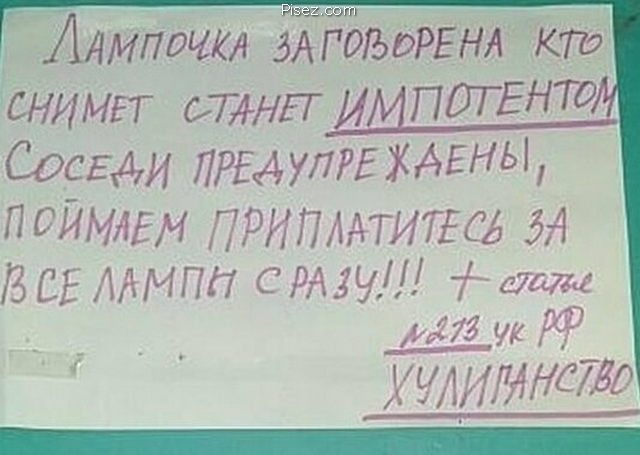 Pisez.com
ЛАМПОЧКА ЗАГОВОРЕНА КТО
СНИМЕТ СТАНЕТ ИМПОТЕНТОМ
СОСЕДИ ПРЕДУПРЕЖДЕНЫ,
ПОЙМАЕМ ПРИПЛАТИТЕСЬ ЗА
ВСЕ ЛАМПЫ СРАЗУ!!! + статье
№213 УК РФ
ХУЛИГАНСТВО